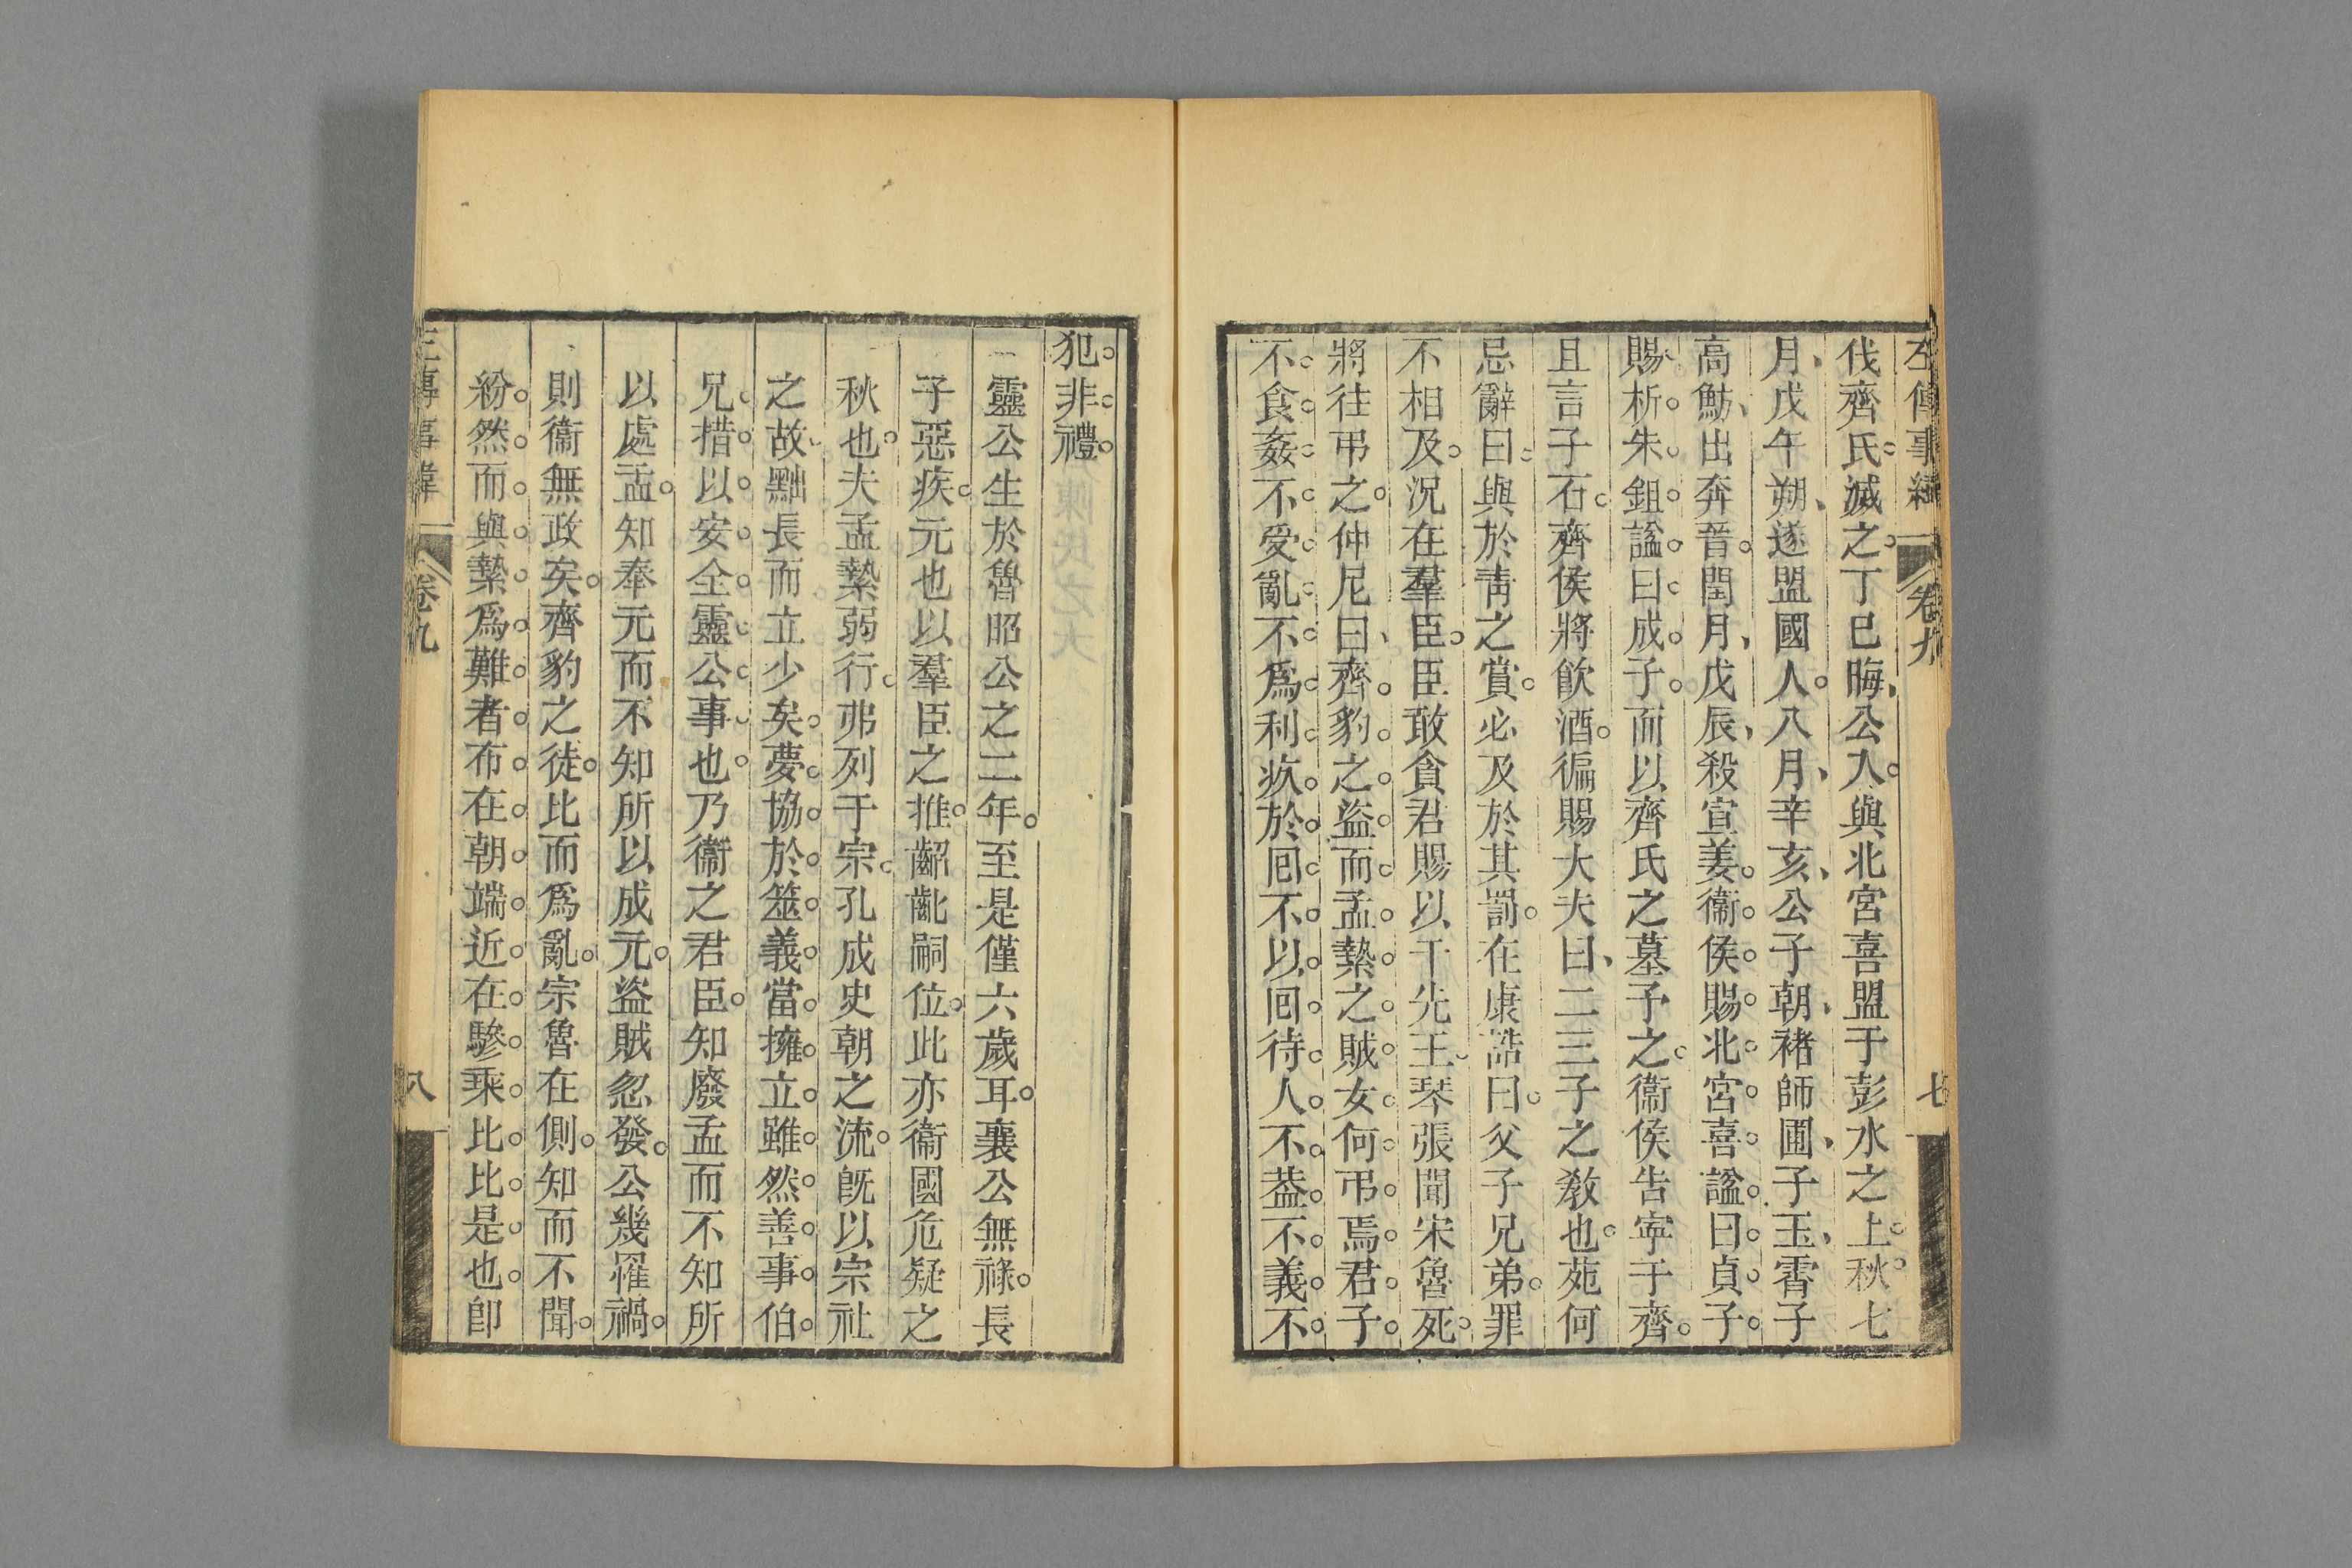 左傳事緯 卷九 七
伐齊氏。滅之。丁巳晦、公入。與北宮喜盟于彭水之上。秋。七
月、戊午朔、遂盟國人。八月、辛亥、公子朝、褚師圃、子玉、霄子
高魴、出奔晉。閏月、戊辰、殺宣姜。衞侯。賜北宮喜。諡曰貞子。
賜析朱鉏。諡曰成子。而以齊氏之墓予之。衞侯告寧于齊。
且言子石。齊侯將飮酒。徧賜大夫曰、二三子之敎也。苑何
忌辭曰。與於靑之賞。必及於其罰。在康誥曰。父子兄弟。罪
不相及。況在羣臣。臣敢貪君賜以干先王、琴張聞宋魯死。
將往弔之。仲尼曰、齊豹之盜。而孟縶之賊。女何弔焉。君子
不食姦。不受亂。不爲利疚於囘。不以囘待人。不葢不義。不
犯非禮。
靈公生於魯昭公之二年。至是僅六歲耳。襄公無祿。長
子惡疾。元也以羣臣之推。齠齔嗣位。此亦衞國危疑之
秋也。夫孟縶弱行。弗列于宗。孔成史朝之流。旣以宗社
之故、黜長而立少矣。夢協於筮。義當擁立。雖然善事伯。
兄措以安全靈公事也。乃衞之君臣。知廢孟而不知所
以處孟。知奉元而不知所以成元。盜賊忽發。公幾罹禍。
則衞無政矣。齊豹之徒。比而爲亂。宗魯在側。知而不聞。
紛然而與縶爲難者。布在朝端。近在驂乘。比比是也。卽
左傳事緯 卷九 八